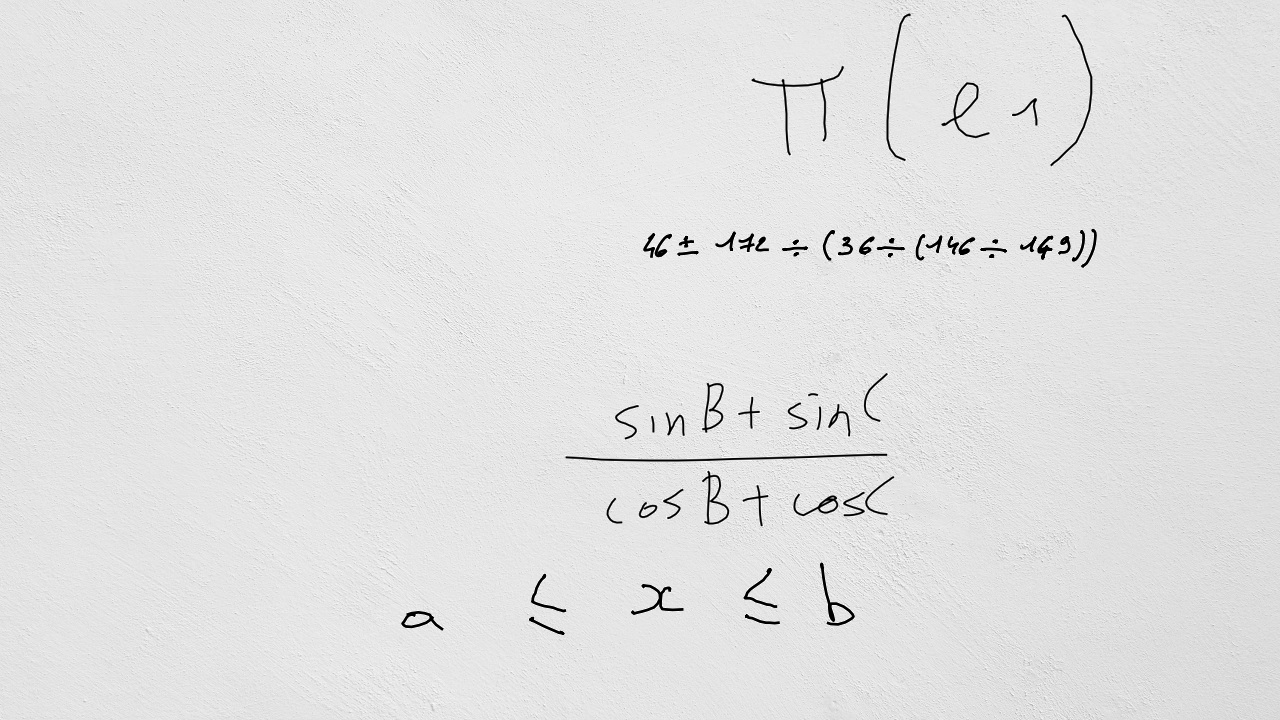 π(e1)
46 ± 172 ÷ (36 ÷ (146 ÷ 169))
sin B + sin C
cos B + cos C
a ≤ x ≤ b